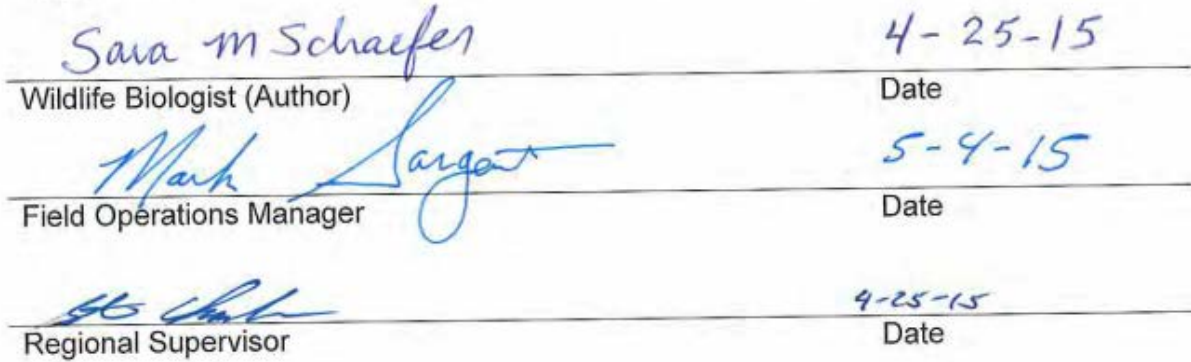 Sara M Schaefer 4-25-15
Wildlife Biologist (Author) Date
Mark Sargent 5-4-15
Field Operations Manager Date
4-25-15
Regional Supervisor Date